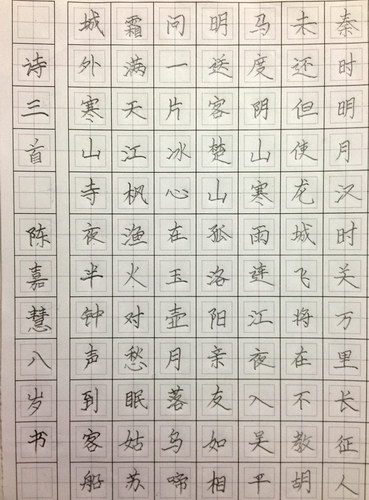 秦时明月汉时关万里长征人
未还但使龙城飞将在不教胡
马度阴山寒雨连江夜入吴平
明送客楚山孤洛阳亲友如相
问一片冰心在玉壶月落乌啼
霜满天江枫渔火对愁眠姑苏
城外寒山寺夜半钟声到客船
诗三首 陈嘉慧八岁书